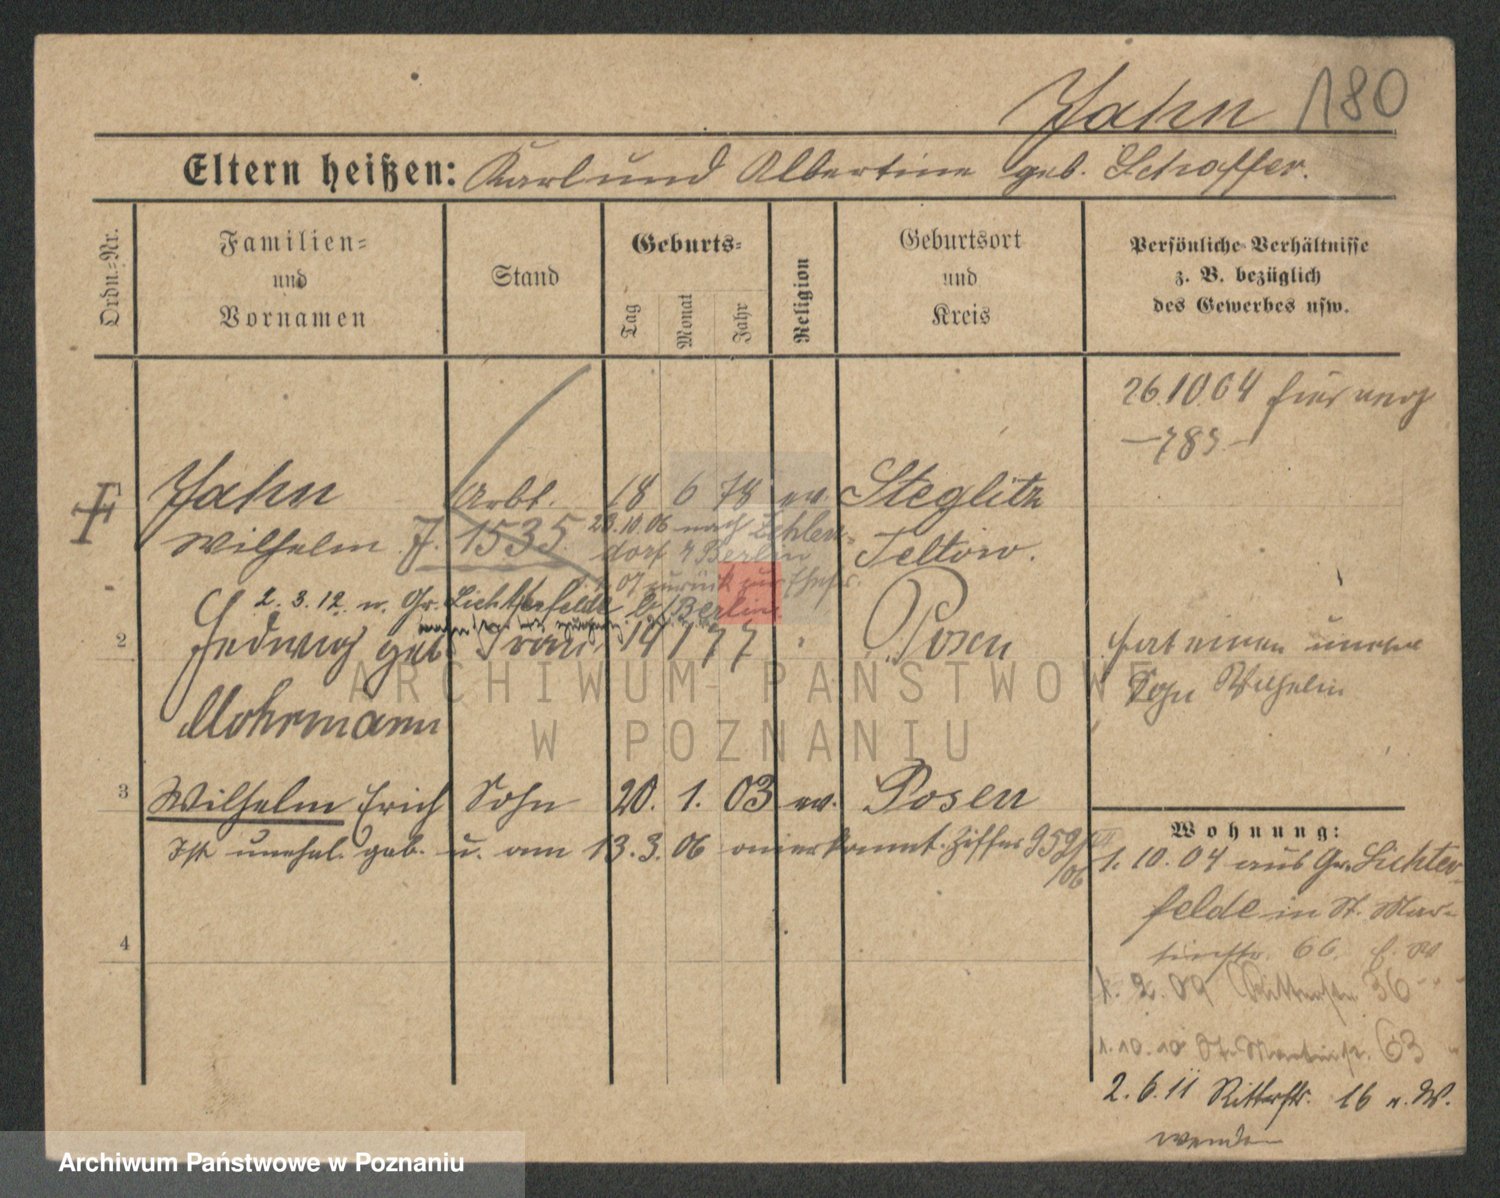 Jahn 180
Eltern heißen: Karl und Albertine geb. Schaffer.
Ordn.=Nr.
Familien=
und
Vornamen
Stand
Geburts=
Tag
Monat
Jahr
Religion
Geburtsort
und
Kreis
Persönliche Verhältnisse
z. B. bezüglich
des Gewerbes usw.
26.10.04
Jahn Arbt. 18 6 78 ev. Steglitz
Wilhelm J. 1535 Teltow.
23.10.06 nach Zehlen-
dorf b/Berlin
07 zurück zur Ehefr.
2.3.12 n. Gr. Lichterfelde b/Berlin
2 Hedwig geb. Frau 14 1 77 Posen
Mohrmann
hat einen unehel
Sohn Wilhelm
3 Wilhelm Erich Sohn 20. 1. 03 ev. Posen
Ist unehel. geb. u. am 13.3.06 anerkannt. Ziffer 959
/06
4
Wohnung:
1.10.04 aus Gr. Lichter-
felde in St. Mar-
tinstr. 66.
1.2.09 Ritterstr. 36
1.10.10 St. Martinstr. 63
2.6.11 Ritterstr. 16 n. W.
wenden
ARCHIWUM PAŃSTWOWE
W POZNANIU
Archiwum Państwowe w Poznaniu